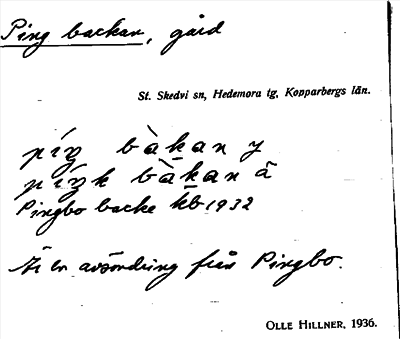 Ping backan, gård
St. Skedvi sn, Hedemora tg, Kopparbergs län.
píŋ bàkan y
píŋk bàkan å̂
Pingbo backe kb 1932
Är en avsöndring från Pingbo.
OLLE HILLNER, 1936.